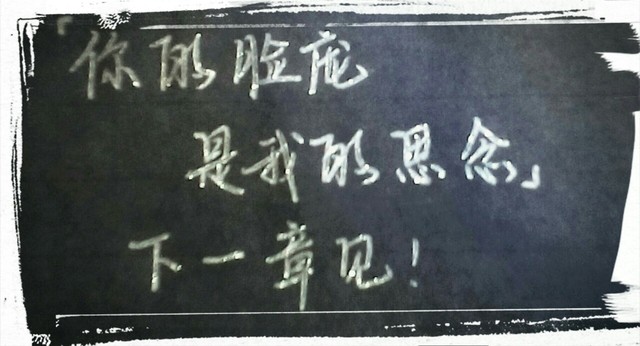 「你的脸庞
是我的思念」
下一章见！